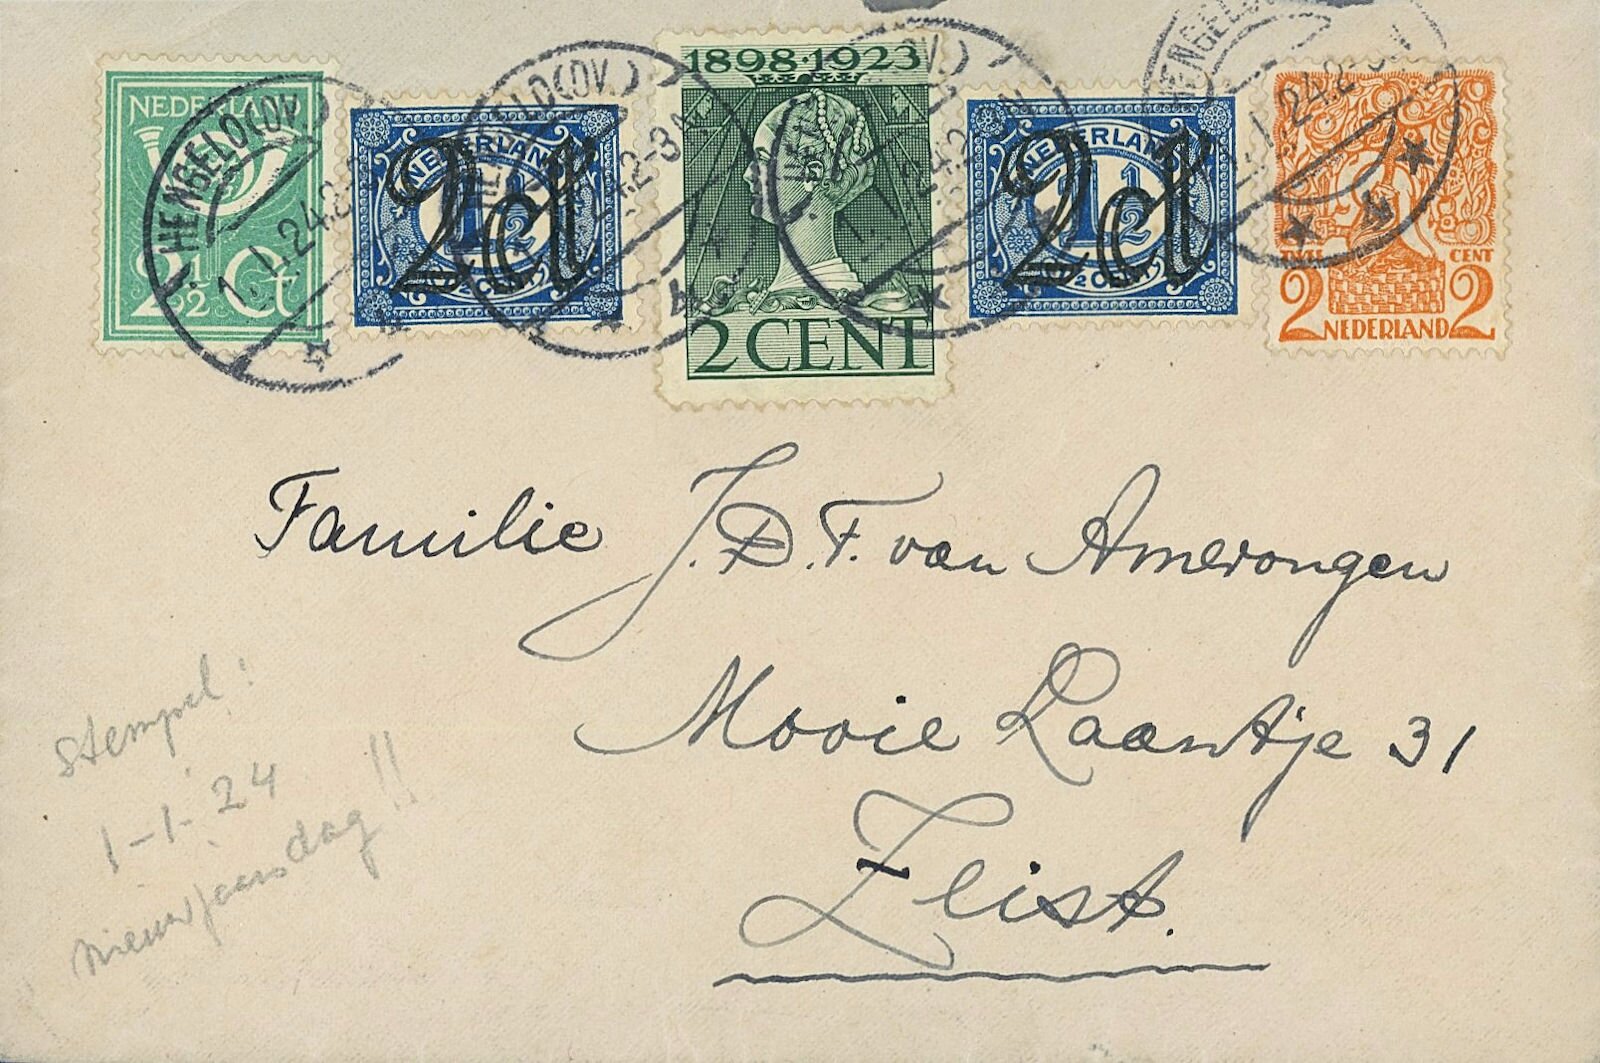 NEDERLAND
2½ Ct
HENGELO (OV.)
1.1.24.
NEDERLAND
1½
½ CENT
2 ct
1898·1923
2 CENT
NEDERLAND
1½
½ CENT
2 ct
HENGELO
1.24.2
CENT
2 NEDERLAND 2
Familie J. D. F. van Amerongen
Mooie Laantje 31
Zeist.
stempel:
1-1-24
nieuwjaarsdag!!